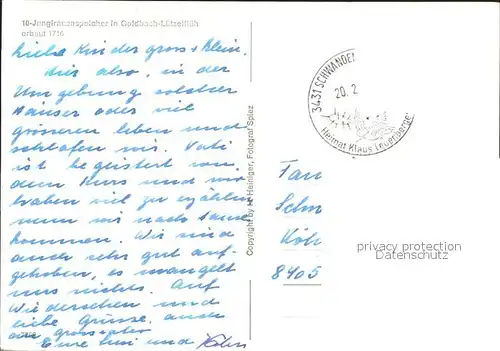 10-Jungfrauenspeicher in Goldbach-Lützelflüh
erbaut 1716
Liebe Kinder gross + klein.
Hier also, in der
Umgebung solcher
Häuser oder viel
grösseren leben und
schlafen wir. Vati
ist begeistert von
dem Kurs und wir
haben viel zu erzählen
wenn wir nach Hause
kommen. Wir sind
auch sehr gut auf-
gehoben, es mangelt
uns nichts. Auf
Wiedersehen und
liebe Grüsse, auch
den Grossvater
Eure Susi und
Copyright by H. Heiniger, Fotograf Spiez
3431 SCHWANDEN
20. 2
Heimat Klaus Leuenberger
Fam
Schm
Köh
8405
privacy protection
Datenschutz